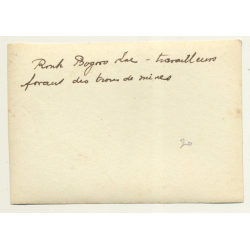 Ronk Bogoro Lac - travailleurs
forant des trous de mines
20